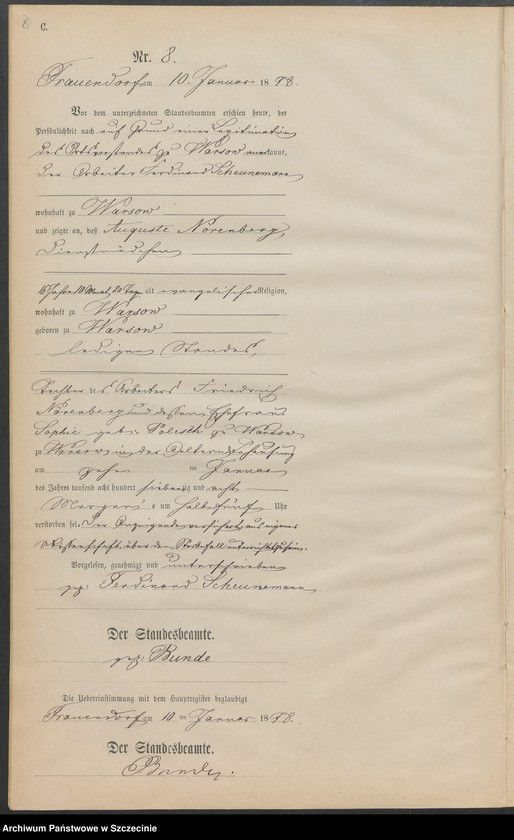 8
C.
Nr. 8.
Frauendorf am 10. Januar 1878.
Vor dem unterzeichneten Standesbeamten erschien heute, der
Persönlichkeit nach auf Grund einer Legitimation
des Ortsvorstandes zu Warsow anerkannt,
der Arbeiter Ferdinand Scheunemann
wohnhaft zu Warsow
und zeigte an, daß Auguste Nörenberg,
Dienstmädchen
16 Jahre 10 Monat, 20 Tage alt evangelischer Religion,
wohnhaft zu Warsow
geboren zu Warsow
ledigen Standes,
Tochter des Arbeiters Friedrich
Nörenberg und dessen Ehefrau
Sophie geb. Polesch zu Warsow
zu Warsow in der Aeltern Behausung
am zehn ten Januar
des Jahres tausend acht hundert siebenzig und acht
Morgens um halb fünf Uhr
verstorben sei. Der Anzeigende versichert, aus eigener
Wissenschaft über den Sterbefall unterrichtet zu sein.
Vorgelesen, genehmigt und unterschrieben
gez. Ferdinand Scheunemann.
Der Standesbeamte.
gez. Bunde
Die Uebereinstimmung mit dem Hauptregister beglaubigt
Frauendorf am 10 ten Januar 1878.
Der Standesbeamte.
Bunde.
Archiwum Państwowe w Szczecinie